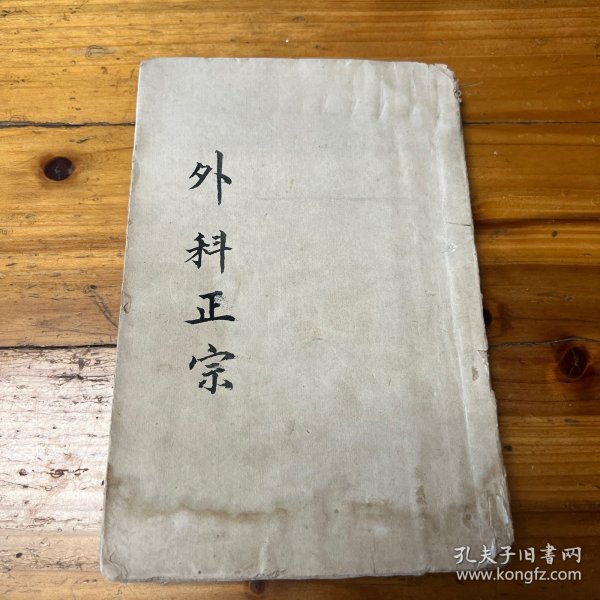 外科正宗
孔夫子旧書网
www.kongfz.com